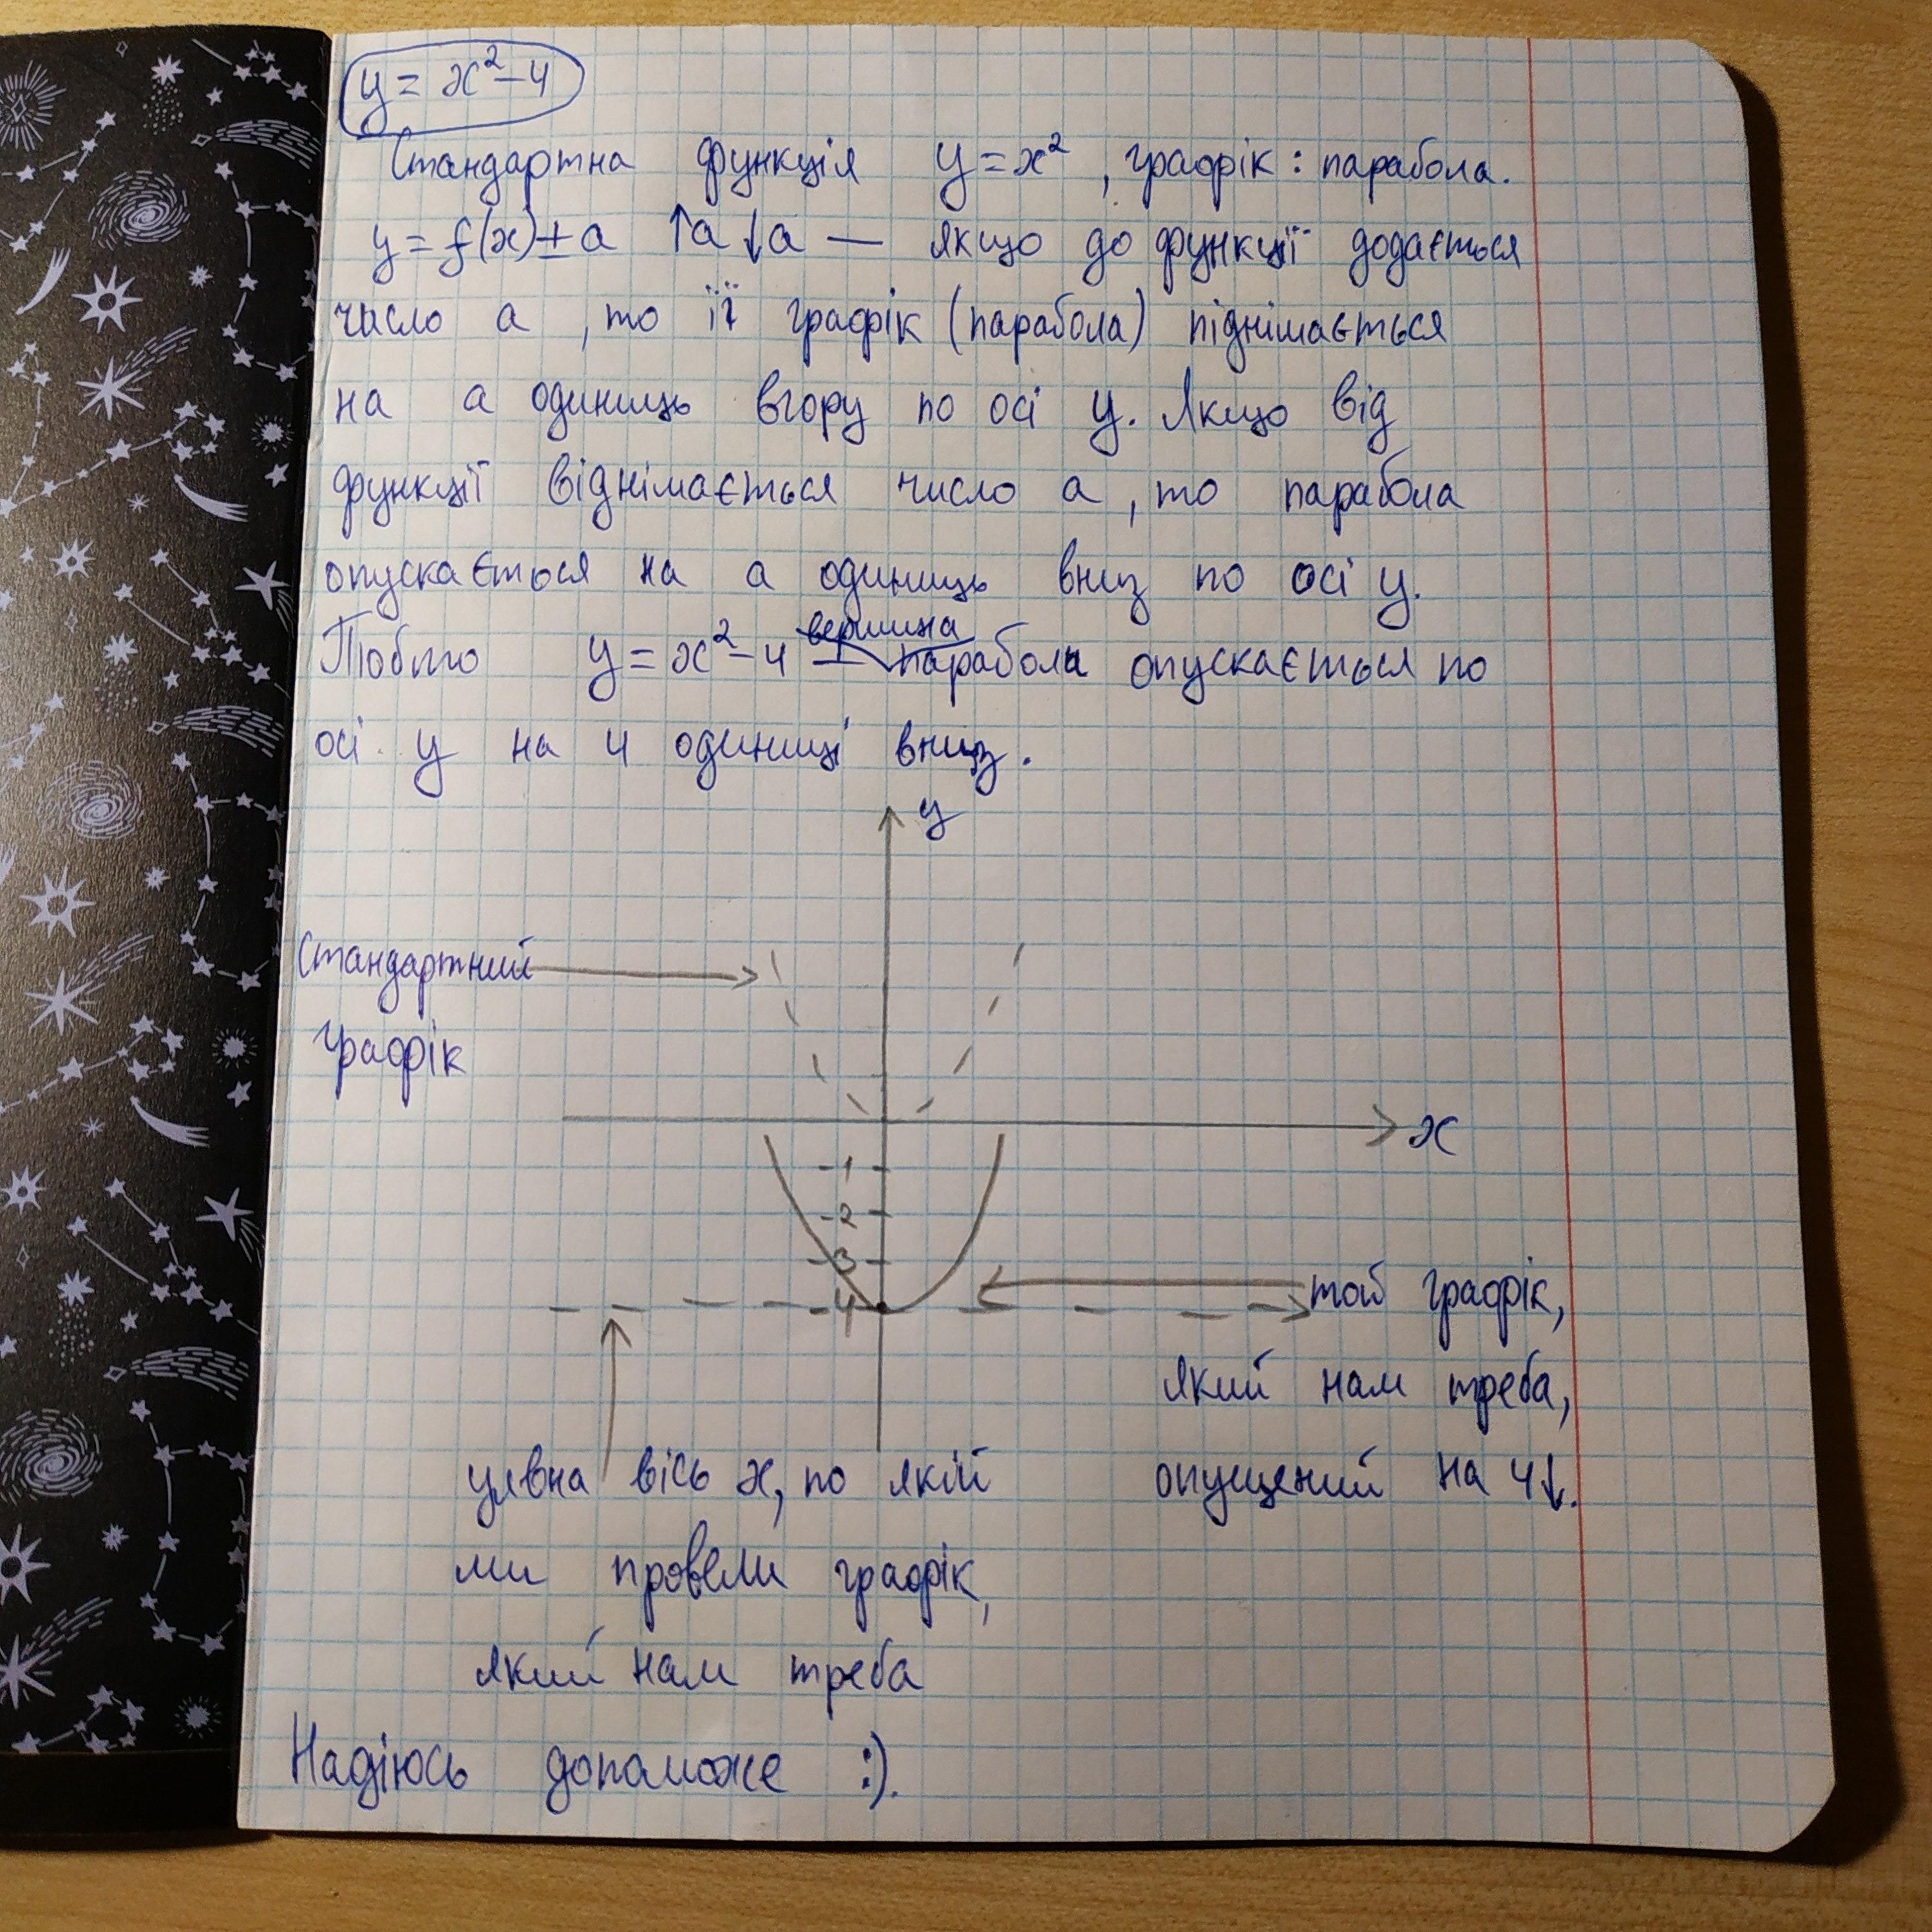 y = x² – 4
Стандартна функція y = x², графік : парабола.
y = f(x) ± a ↑a ↓a — якщо до функції додається
число a, то її графік (парабола) піднімається
на a одиниць вгору по осі y. Якщо від
функції віднімається число a, то парабола
опускається на a одиниць вниз по осі y.
вершина
Тобто y = x² – 4 — парабола опускається по
осі y на 4 одиниці вниз.
y
Стандартний
графік
x
-1
-2
-3
-4
той графік,
який нам треба,
опущений на 4↓.
уявна вісь x, по якій
ми провели графік,
який нам треба
Надіюсь допоможе :).